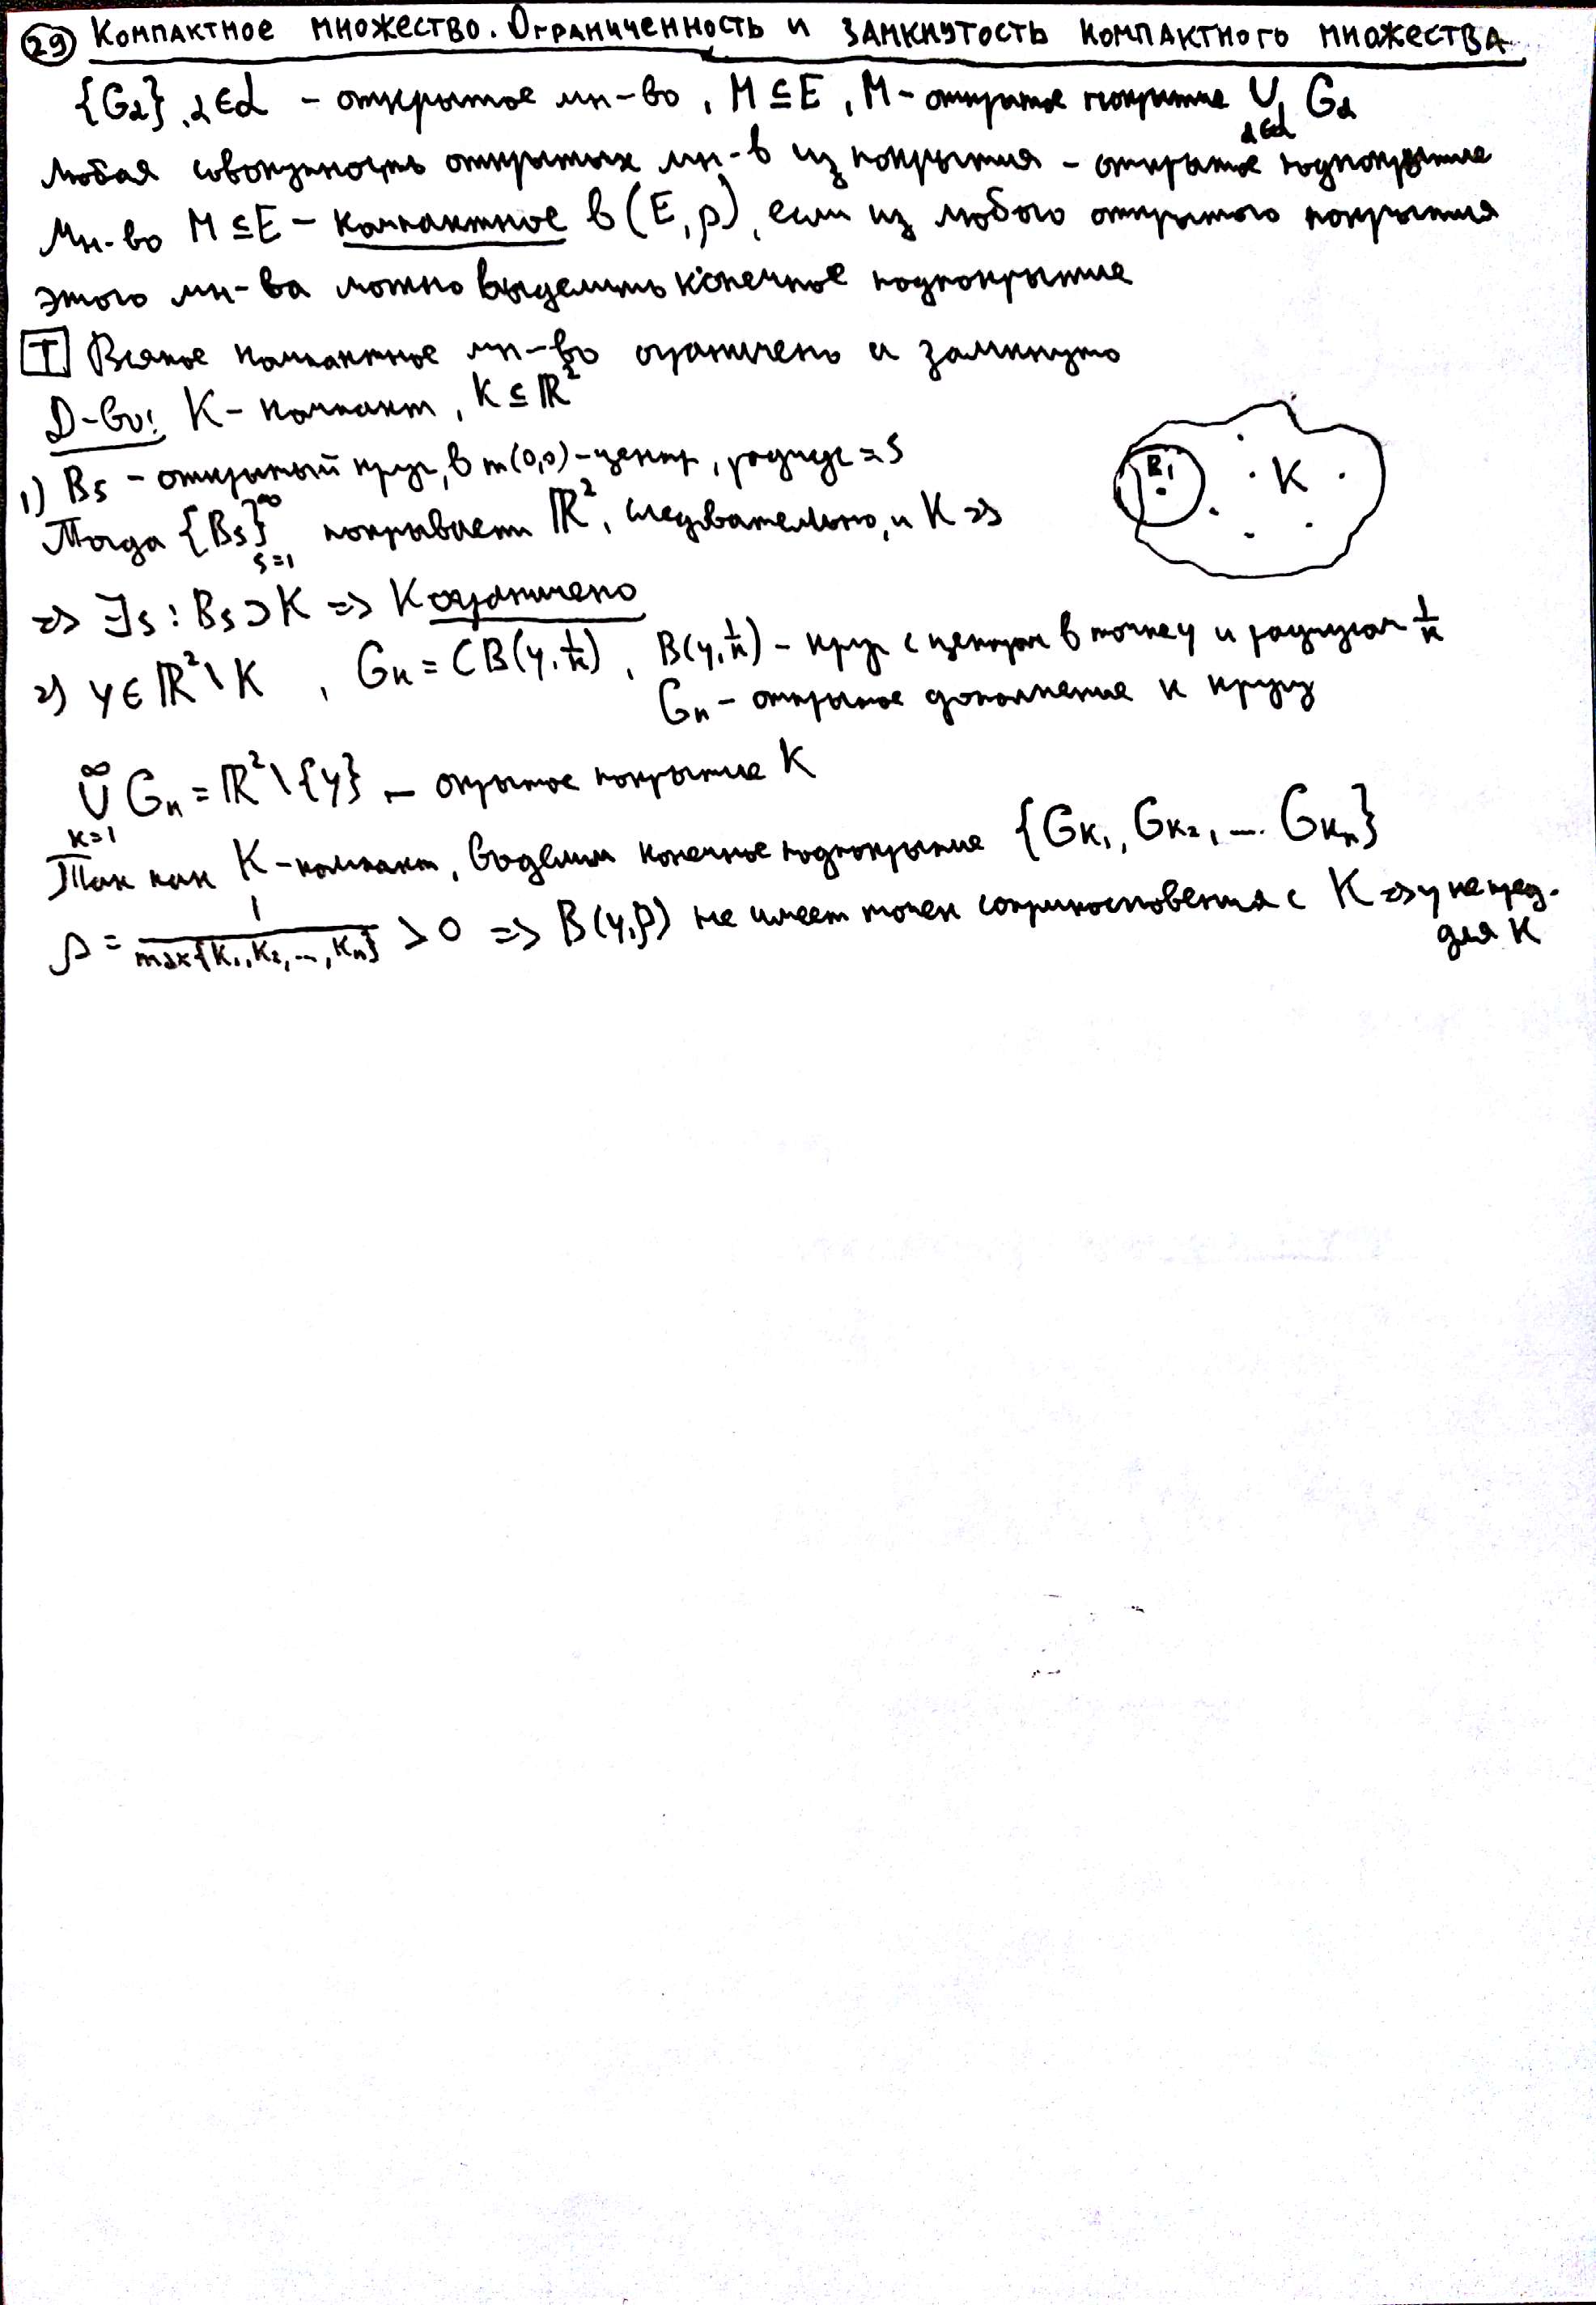 29 Компактное множество. Ограниченность и замкнутость компактного множества
{G_α}, α∈𝓛 – открытое мн-во, M ⊆ E, M – открытое покрытие ⋃_{α∈𝓛} G_α
Любая совокупность открытых мн-в из покрытия – открытое подпокрытие
Мн-во M ⊆ E – компактное в (E, ρ), если из любого открытого покрытия
этого мн-ва можно выделить конечное подпокрытие
T Всякое компактное мн-во ограничено и замкнуто
Д-во: K – компакт, K ⊆ ℝ²
1) B_s – открытый круг, в т(0,0) – центр, радиус = s
B₁ K
Тогда {B_s}_{s=1}^∞ покрывает ℝ², следовательно, и K =>
=> ∃s : B_s ⊃ K => K ограничено
2) y ∈ ℝ² \ K, G_k = CB(y, 1/k), B(y, 1/k) – круг с центром в точке y и радиусом 1/k
G_k – открытое дополнение к кругу
⋃_{k=1}^∞ G_k = ℝ² \ {y} – окрытое покрытие K
Так как K – компакт, выделим конечное подпокрытие {G_{k₁}, G_{k₂}, ... G_{kₙ}}
ρ = 1/max{k₁, k₂, ..., kₙ} > 0 => B(y, ρ) не имеет точек соприкосновения с K => y не пред.
для K